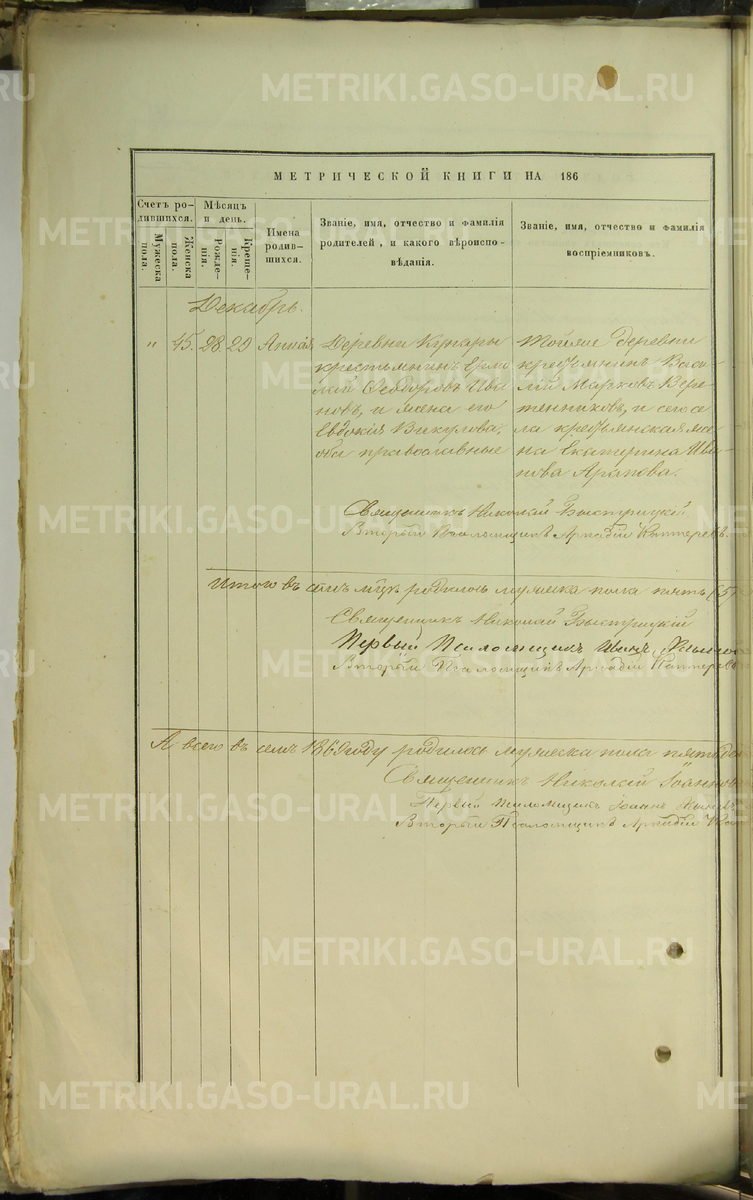 METRIKI.GASO-URAL.RU
МЕТРИЧЕСКОЙ КНИГИ НА 186
Счетъ ро-
дившихся.
Мужеска
пола.
Женска
пола.
Мѣсяцъ
и день.
Рожде-
нія.
Креще-
нія.
Имена
родив-
шихся.
Званіе, имя, отчество и фамилія
родителей, и какого вѣроиспо-
вѣданія.
Званіе, имя, отчество и фамилія
воспріемниковъ.
Декабрь.
" 45. 28. 29
Деревни Кунары
крестьянинъ Ермо
лай Ѳеодоровъ Ива
новъ, и жена его
Евдокія Викулова,
оба православные
Тойже деревни
крестьянинъ Васи
лій Марковъ Вере
тенниковъ, и сего се
ла крестьянская же
на Екатерина Ива
нова Арапова.
Священникъ Николай Быстрицкій
Второй Псаломщикъ Аркадій Каптеревъ
Итого въ семъ м-цѣ родилось мужеска пола пять (5)
Священникъ Николай Быстрицкій
Первый Псаломщикъ Иоаннъ
Второй Псаломщикъ Аркадій Каптеревъ
А всего въ семъ 1869 году родилось мужеска пола
Священникъ Николай
Первый Псаломщикъ Іоаннъ
Второй Псаломщикъ Аркадій